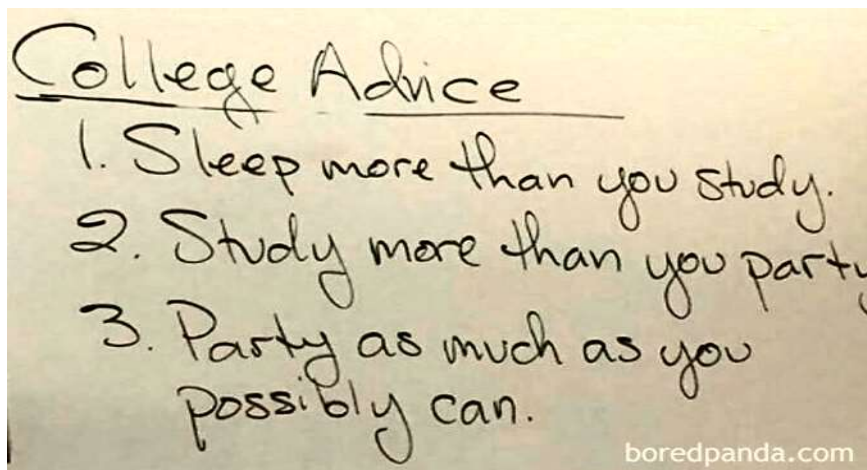 College Advice
1. Sleep more than you study.
2. Study more than you party
3. Party as much as you
possibly can.
boredpanda.com